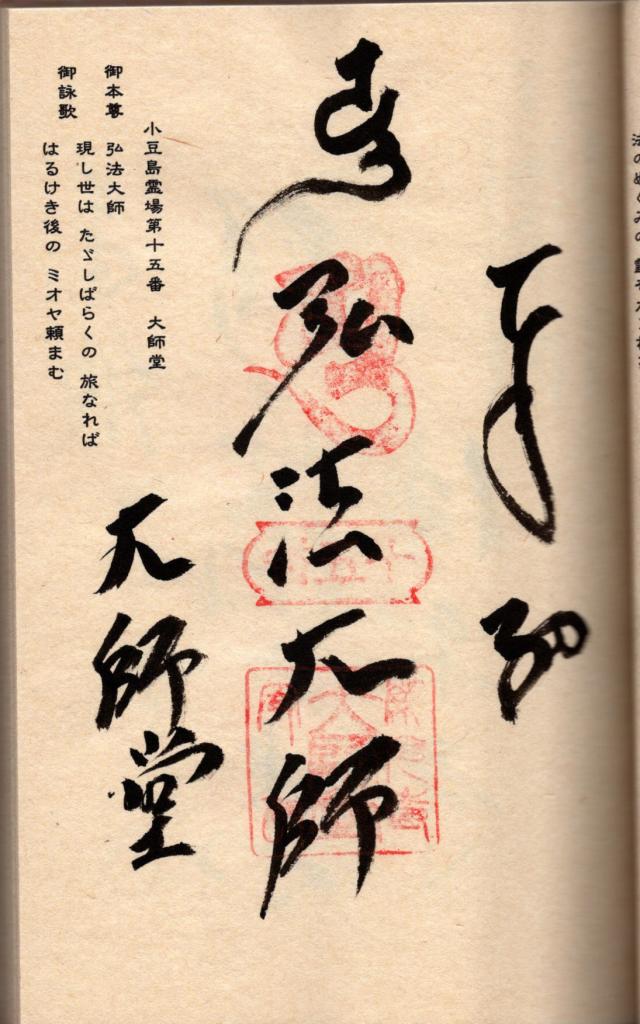 奉納
弘法大師
大師堂
小豆島霊場第十五番 大師堂
御本尊 弘法大師
御詠歌 現し世は たゞしばらくの 旅なれば
はるけき後の ミオヤ頼まむ